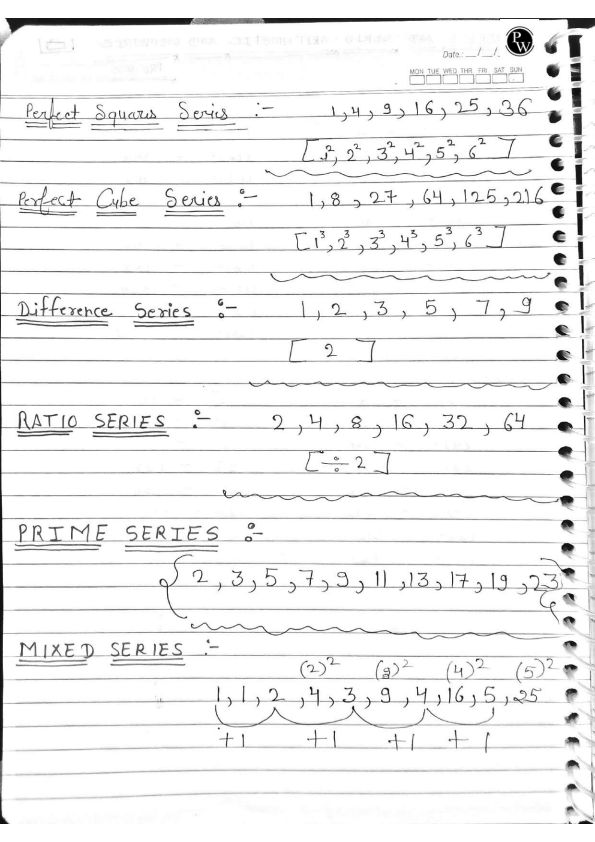 PW
Date: __/__/__
MON TUE WED THR FRI SAT SUN
Perfect Squaris Series :- 1, 4, 9, 16, 25, 36
[1², 2², 3², 4², 5², 6²]
Perfect Cube Series :- 1, 8, 27, 64, 125, 216
[1³, 2³, 3³, 4³, 5³, 6³]
Difference Series :- 1, 2, 3, 5, 7, 9
[ 2 ]
RATIO SERIES :- 2, 4, 8, 16, 32, 64
[÷ 2]
PRIME SERIES :-
{2, 3, 5, 7, 9, 11, 13, 17, 19, 23}
MIXED SERIES :-
(2)² (3)² (4)² (5)²
1, 1, 2, 4, 3, 9, 4, 16, 5, 25
+1 +1 +1 +1